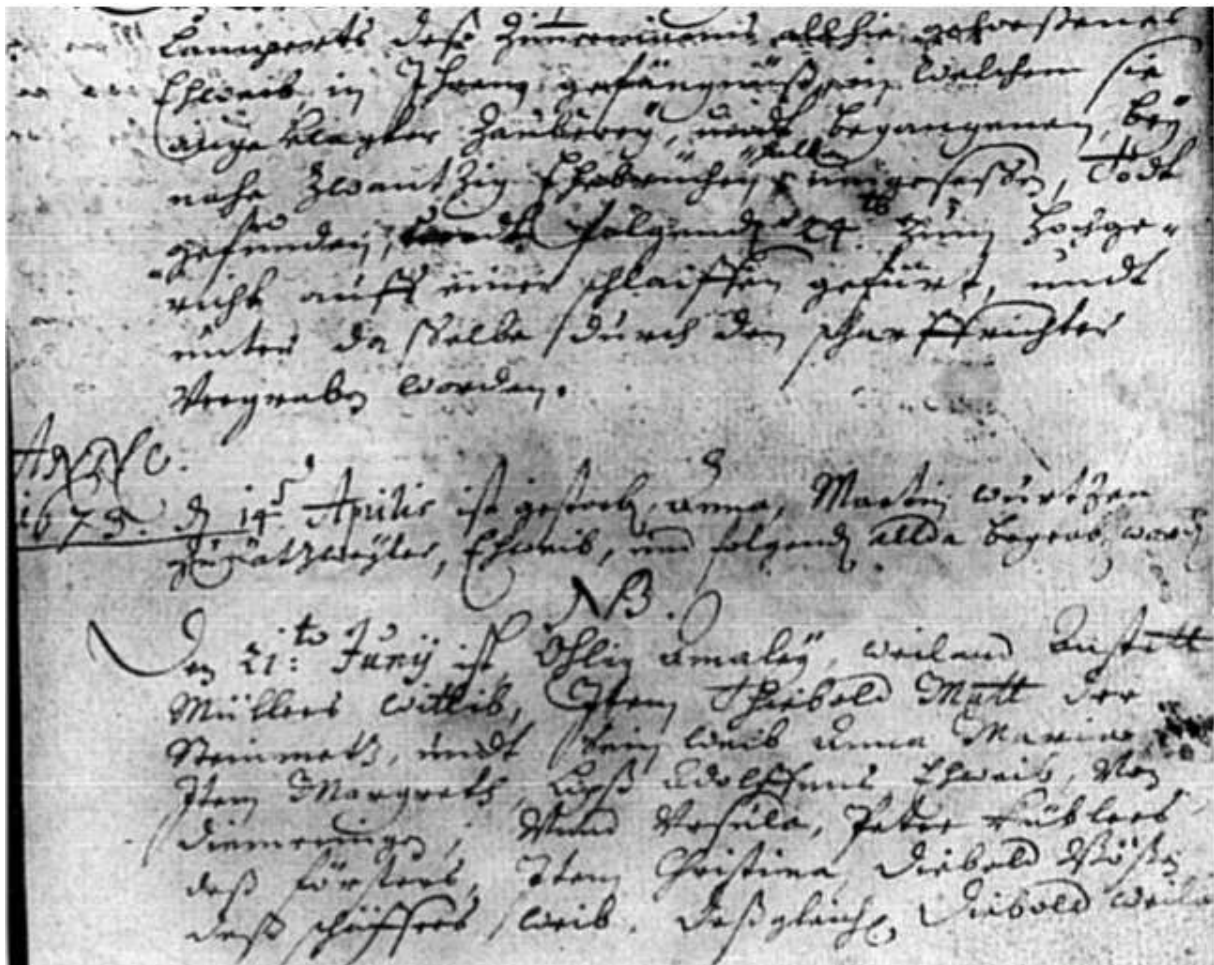 Lamperts deß Zimmermanns allhie gewesenes
Ehweib, in Ihrem gefängnüß, in welchem sie
angeklagter Zauberey, undt begangenen, bey
nahe zwantzig Ehebrüchen halben ingesessen, Todt
gefunden, so folgendts 24. zum Hochge-
richt auff einer schlaiffen gefürt, undt
unter dasselbe durch den scharffrichter
Vergraben worden.
ANNO.
1673. den 14 Aprilis ist gestorben, Anna, Martin Wurtzen
zu Ratzweyler, Ehweib, und folgends allda begraben word
NB.
Den 21: to Junij ist Ohlig Amaley, weiland Anstett
Müllers wittib, Item Thiebold Matt der
Steinmetz, undt sein weib Anna Maria,
Item Margreth, Adolffens Ehweib, Von
Diemeringen, Unnd Ursula, PeterKüblers
deß försters, Item Christina Diebold
deß schäffers weib. Deßgleichen Diebold